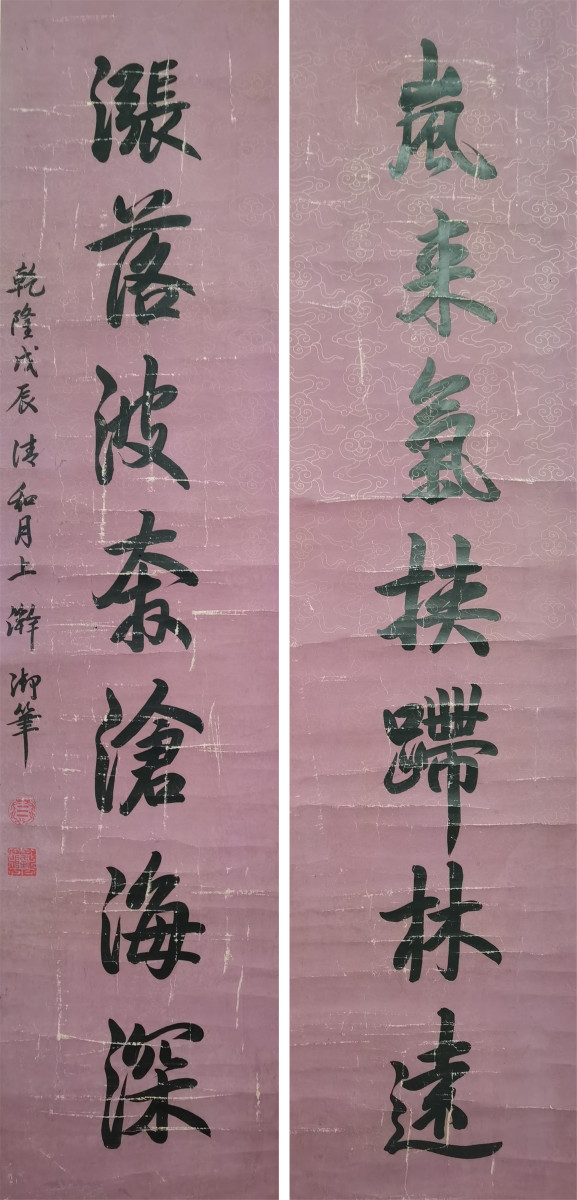 嵐来氣挟蹛林遠
漲落波奔滄海深
乾隆戊辰清和月上澣御筆